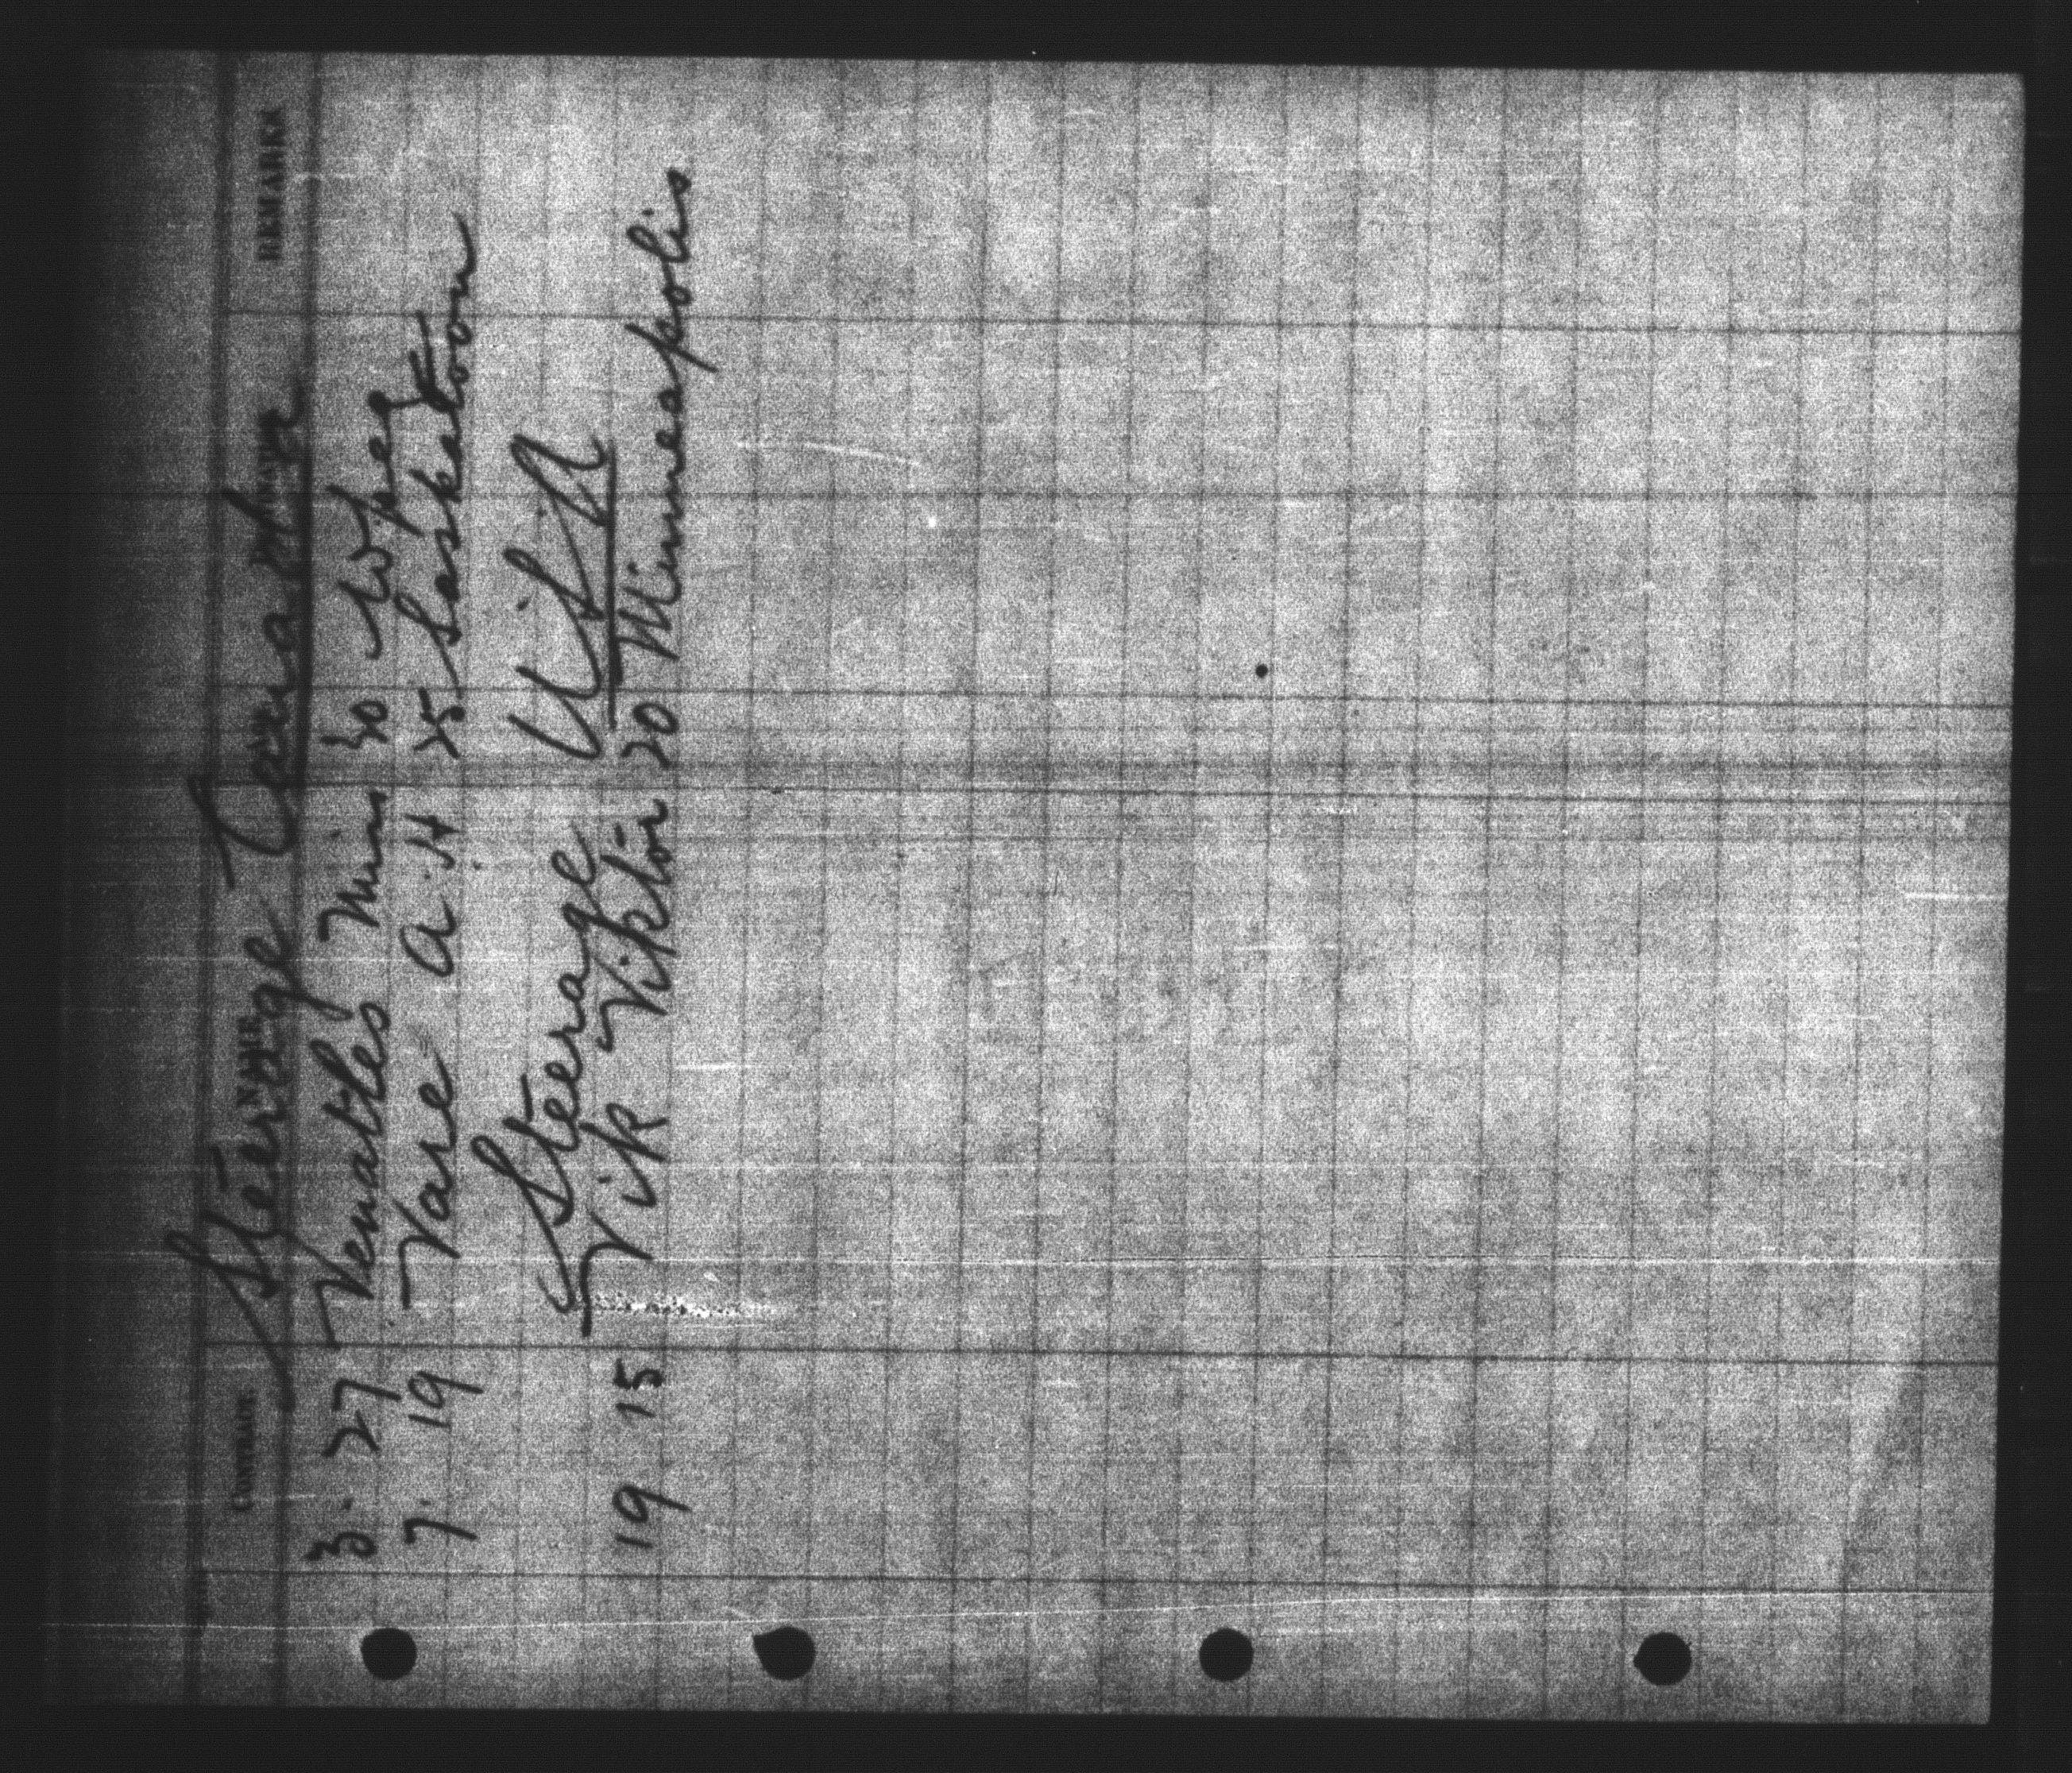 CONTRACT NAME REMARKS
Steerage Canada
3. 27 Venables Miss 30 Wpeg
7. 19 Vare A. H 25 Saskatoon
Steerage U.S.A
19 15 Vik Viktor 20 Minneapolis